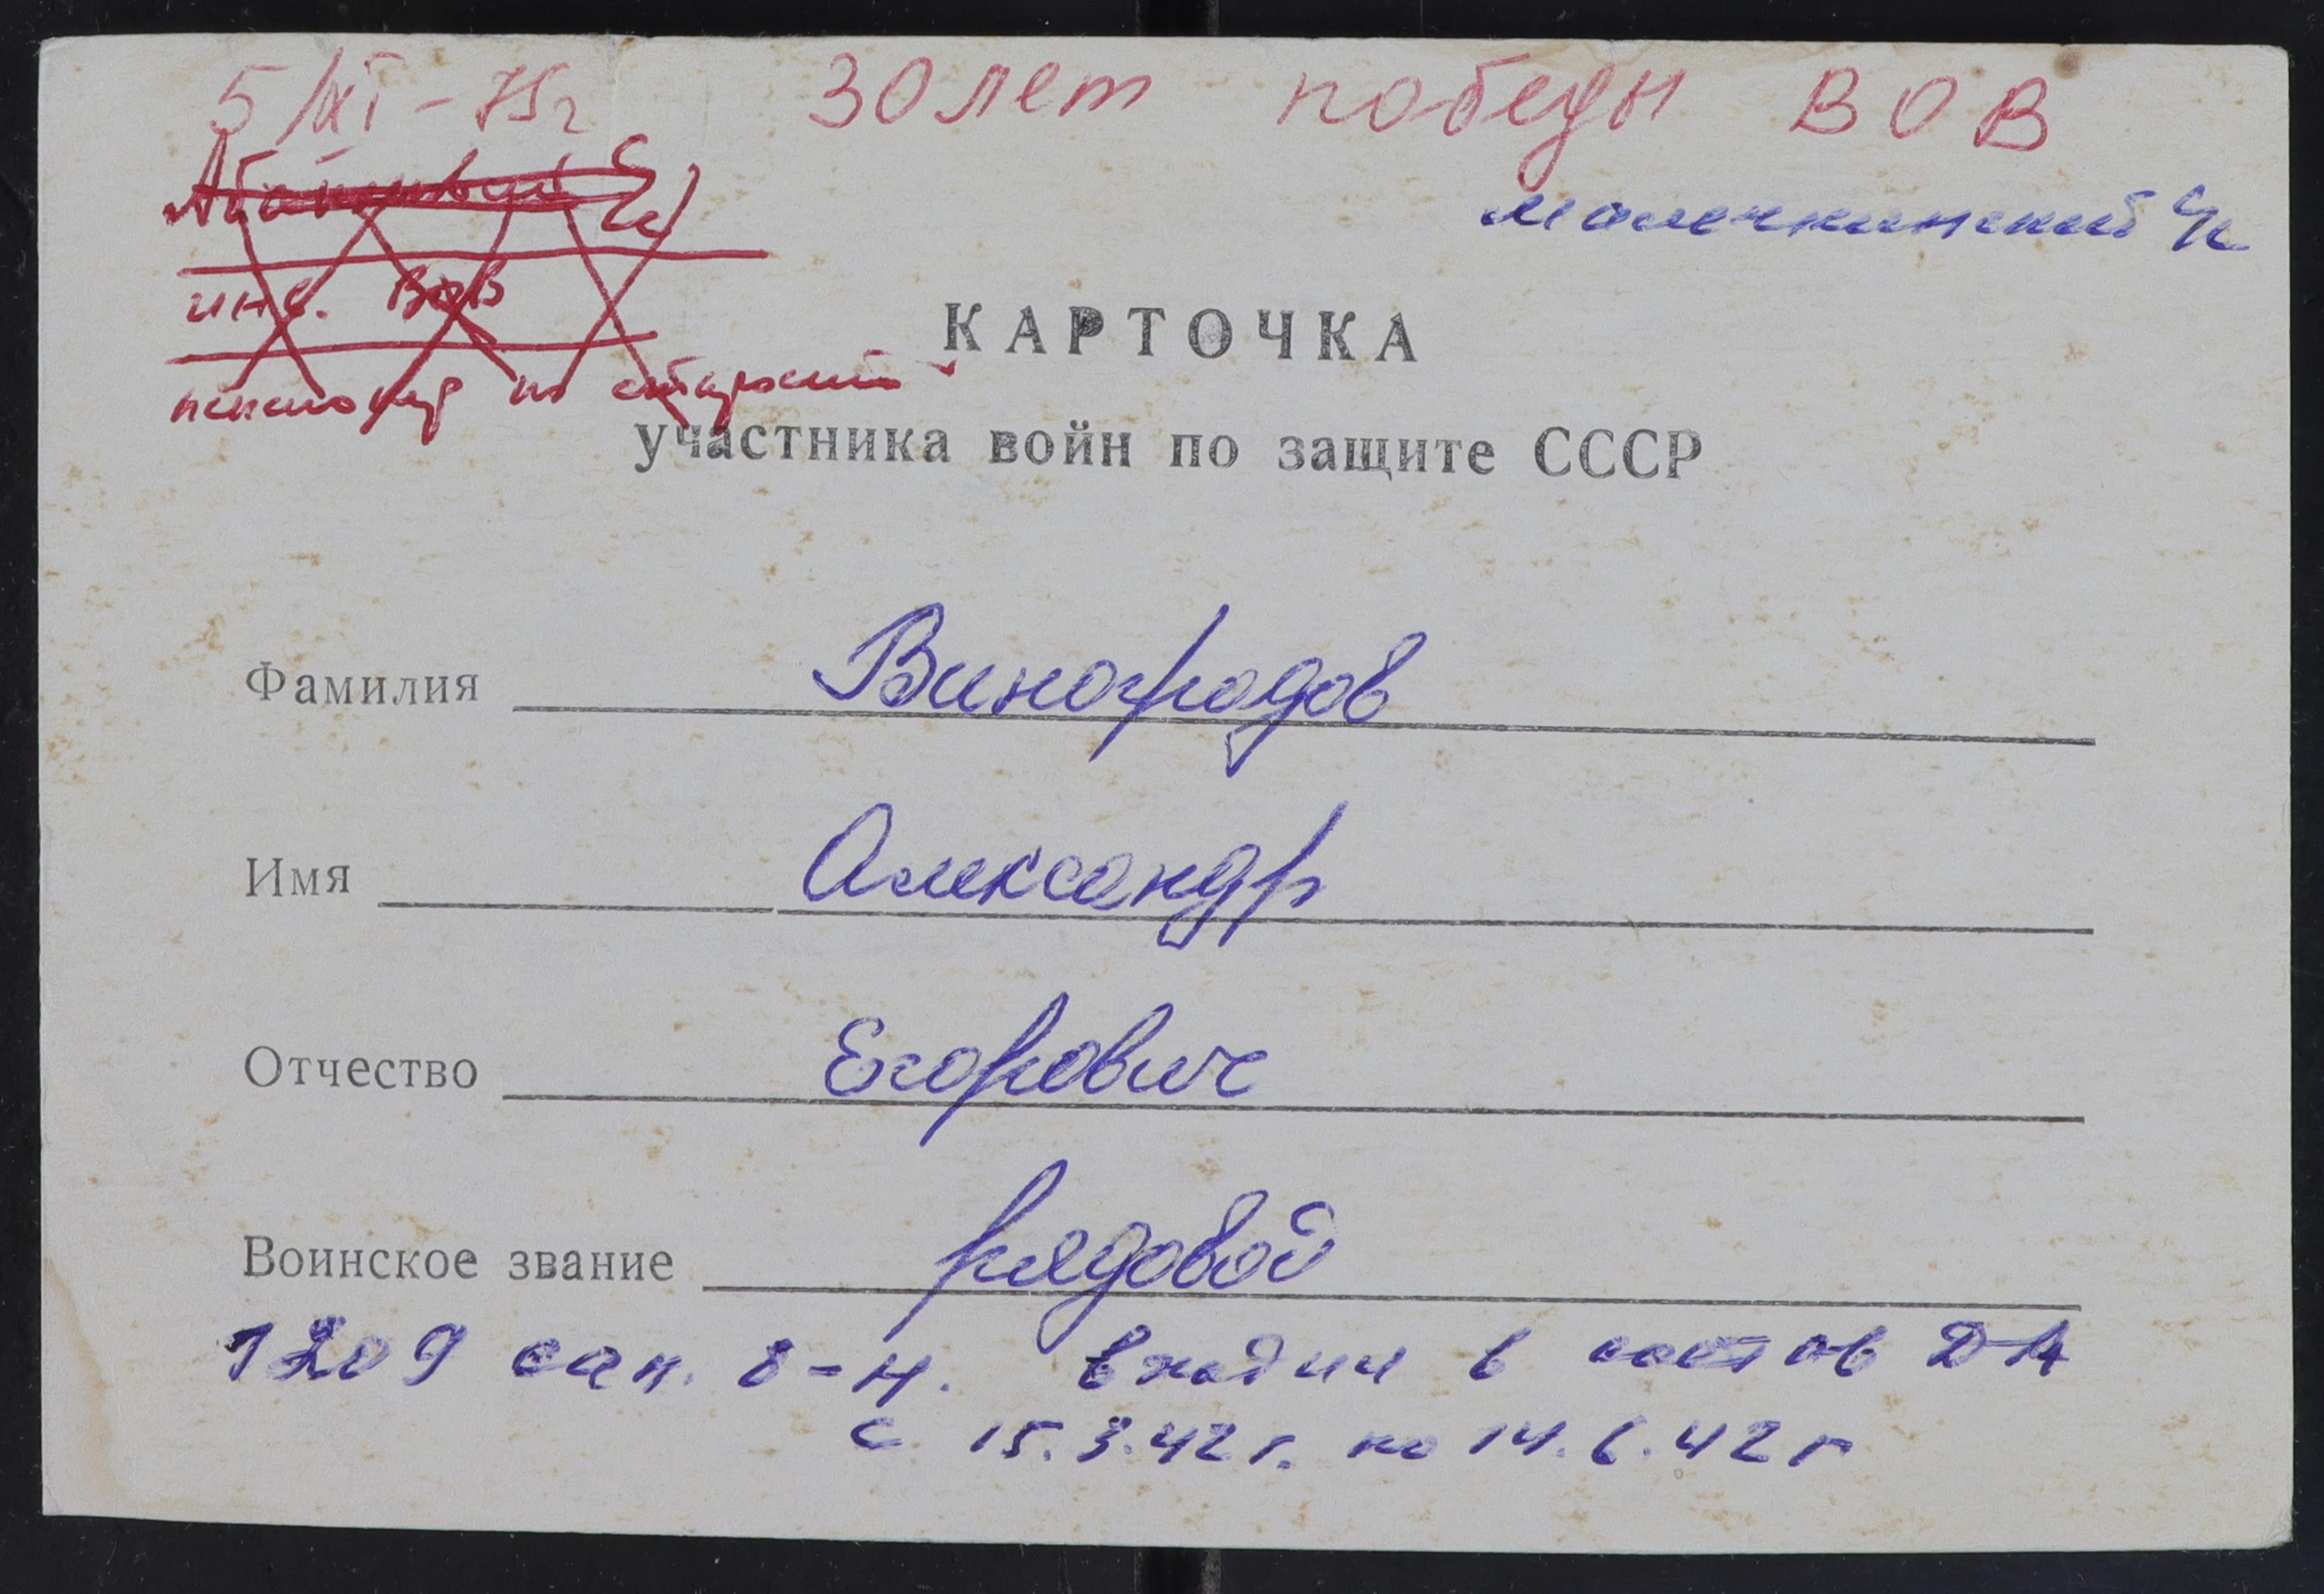 5/XI-75г 30 лет победы ВОВ
инв. ВОВ
пенсионер по старости
КАРТОЧКА
участника войн по защите СССР
Фамилия Виноградов
Имя Александр
Отчество Егорович
Воинское звание рядовой
1209 сап. б-н. входил в состав ДА
с 15.3.42 г. по 14.6.42 г